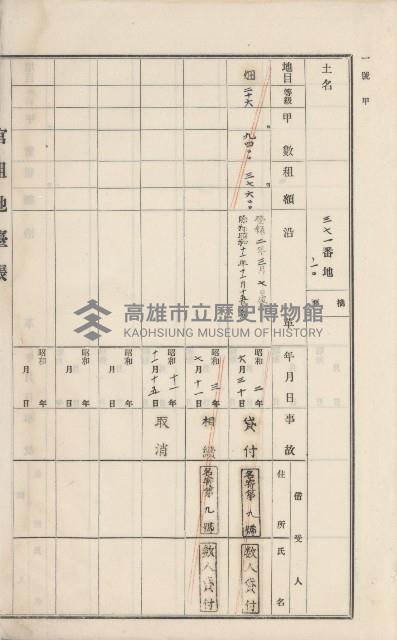 一號甲
土名
三七一番地
ノ一〇
摘
要
地目
等級
甲數
租額
沿革
年月日
事故
借受人
住所
氏名
畑
二十六
九四〇〇
三七六〇
登録二年三月七日
除却昭和十一年十一月十五日
昭和二年六月三十日
貸付
名寄第九號
數人貸付
昭和三年七月十一日
相續
名寄第九號
數人貸付
昭和十一年十一月十五日
取消
昭和年月日
昭和年月日
昭和年月日
官租地臺帳
高雄市立歷史博物館
KAOHSIUNG MUSEUM OF HISTORY